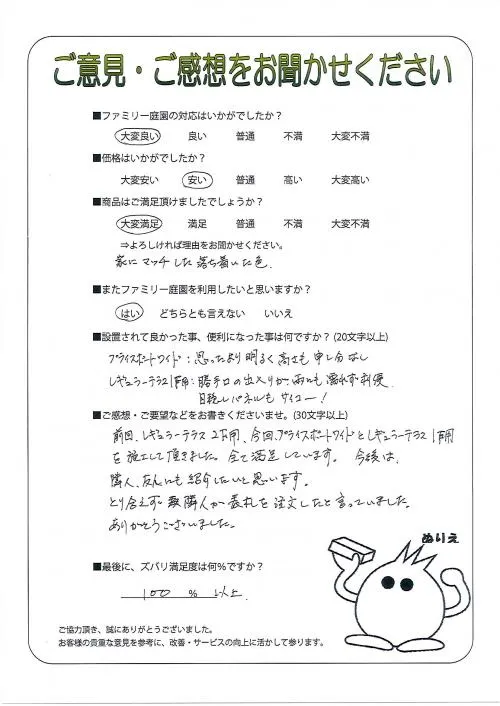 ご意見・ご感想をお聞かせください
■ファミリー庭園の対応はいかがでしたか？
大変良い 良い 普通 不満 大変不満
■価格はいかがでしたか？
大変安い 安い 普通 高い 大変高い
■商品はご満足頂けましたでしょうか？
大変満足 満足 普通 不満 大変不満
⇒よろしければ理由をお聞かせください。
家にマッチした落ち着いた色.
■またファミリー庭園を利用したいと思いますか？
はい どちらとも言えない いいえ
■設置されて良かった事、便利になった事は何ですか？(20文字以上)
プライスポートワイド：思ったより明るく高さも申し分なし
レギュラーテラス1F用：勝手口の出入りが雨にも濡れず利便
目隠しパネルもサイコー！
■ご感想・ご要望などをお書きくださいませ。(30文字以上)
前回、レギュラーテラス2F用、今回、プライスポートワイドとレギュラーテラス1F用
を施工して頂きました。全て満足しています。今後は、
隣人、友人にも紹介したいと思います。
とり合えず 隣人が表札を注文したと言っていました。
ありがとうございました。
ぬりえ
■最後に、ズバリ満足度は何％ですか？
100 % 以上.
ご協力頂き、誠にありがとうございました。
お客様の貴重な意見を参考に、改善・サービスの向上に活かして参ります。